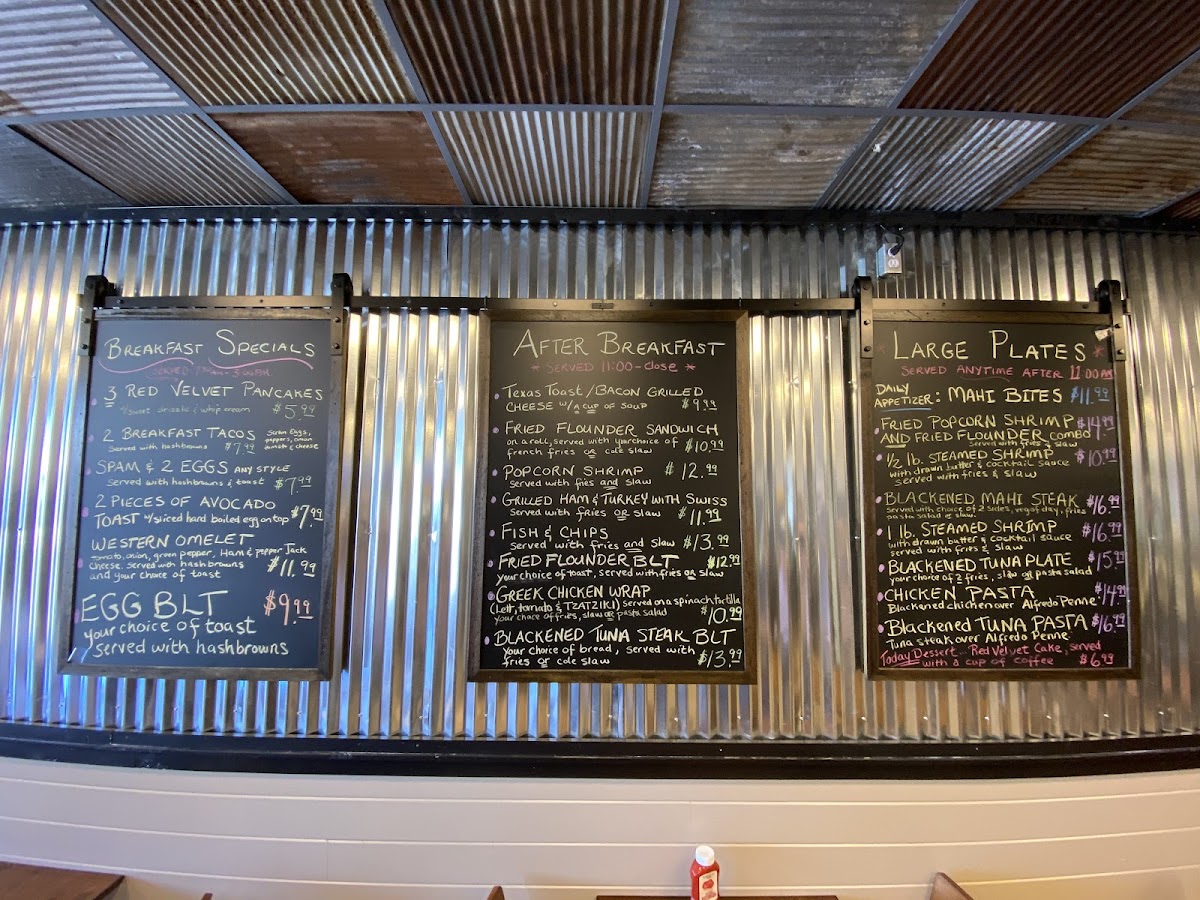 BREAKFAST SPECIALS
3 RED VELVET PANCAKES
w/sweet drizzle & whip cream $5.99
2 BREAKFAST TACOS Scram Eggs,
peppers, onion
tomato, cheese
Served with hashbrowns $7.99
SPAM & 2 EGGS ANY STYLE
Served with hashbrowns & toast $7.99
2 PIECES OF AVOCADO
TOAST w/sliced hard boiled egg on top $7.99
WESTERN OMELET
tomato, onion, green pepper, Ham & pepper Jack
cheese. Served with hashbrowns $11.99
and your choice of toast
EGG BLT $9.99
your choice of toast
served with hashbrowns
AFTER BREAKFAST
* SERVED 11:00-close *
TEXAS TOAST/BACON GRILLED
CHEESE W/A CUP OF SOUP $9.99
FRIED FLOUNDER SANDWICH
on a roll, served with your choice of $10.99
french fries or cole slaw
POPCORN SHRIMP $12.99
served with fries and slaw
GRILLED HAM & TURKEY WITH SWISS
Served with fries OR slaw $11.99
FISH & CHIPS
Served with fries and slaw $13.99
FRIED FLOUNDER BLT $12.99
your choice of toast, served with fries OR slaw
GREEK CHICKEN WRAP
(Lett, tomato & TZATZIKI) served on a spinach tortilla
your choice of fries, slaw OR pasta salad $10.99
BLACKENED TUNA STEAK BLT
Your choice of bread, served with $13.99
fries or cole slaw
* LARGE PLATES *
SERVED ANYTIME AFTER 11:00 AM
DAILY
APPETIZER: MAHI BITES $11.99
FRIED POPCORN SHRIMP $14.99
AND FRIED FLOUNDER COMBO
served with fries & slaw
1/2 lb. STEAMED SHRIMP $10.99
with drawn butter & cocktail sauce
served with fries & slaw
BLACKENED MAHI STEAK $16.99
Served with choice of 2 sides, veg of day, fries
pasta salad or slaw
1 lb. STEAMED SHRIMP $16.99
with drawn butter & cocktail sauce
served with fries & slaw
BLACKENED TUNA PLATE $15.99
your choice of 2 fries, slaw OR pasta salad
CHICKEN PASTA $14.99
Blackened chicken over Alfredo Penne
BLACKENED TUNA PASTA $16.99
Tuna steak over Alfredo Penne
Today Dessert... Red Velvet Cake, served
with a cup of coffee $6.99